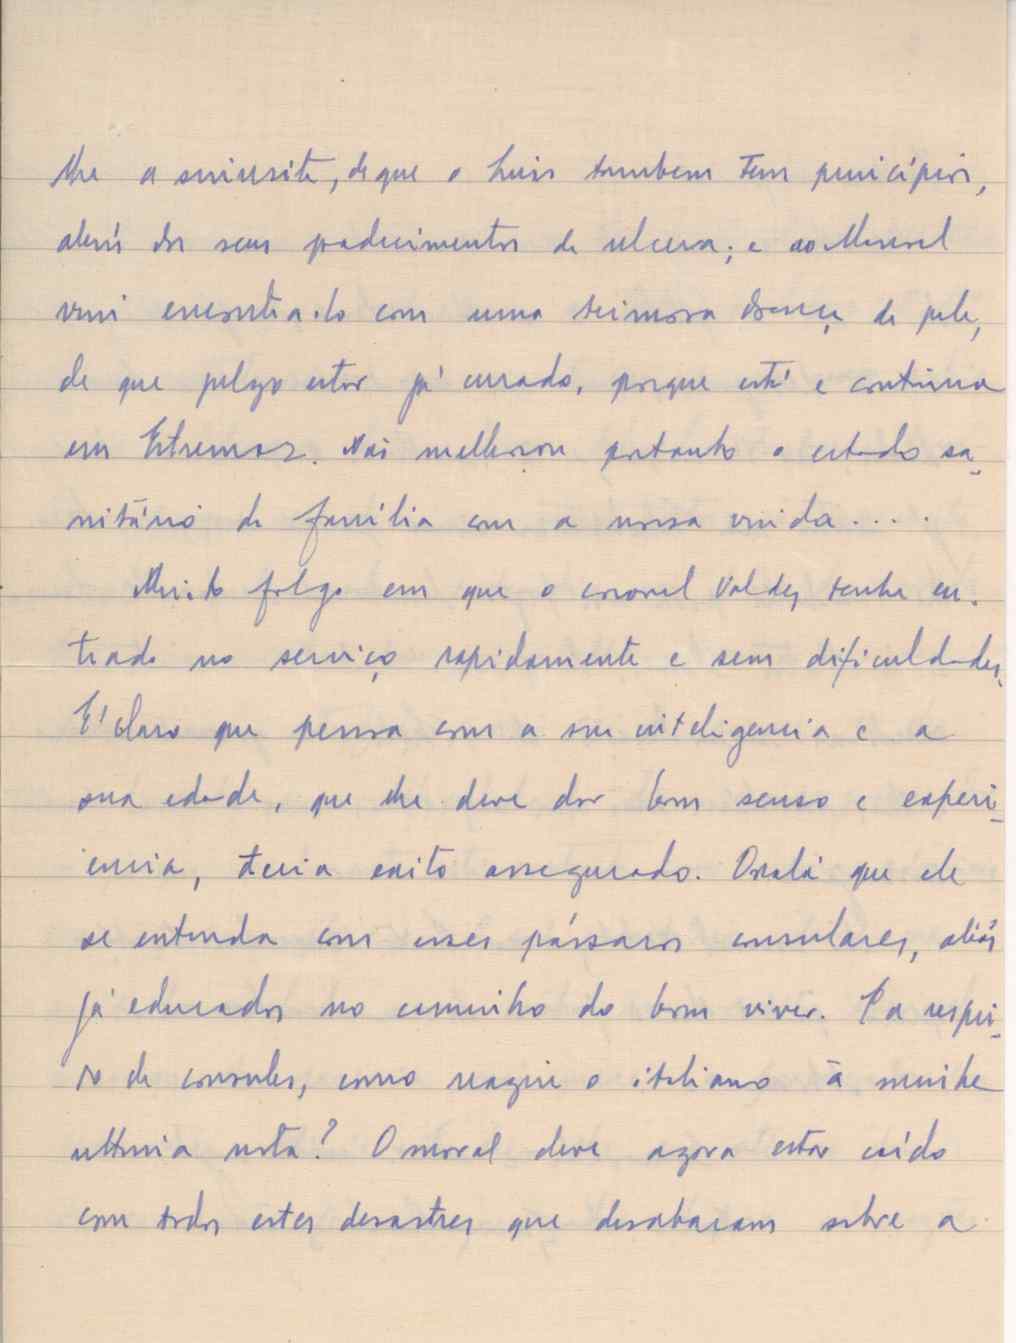 lhe a sinusite, de que o Luis tambem tem principios,
alem dos seus padecimentos de ulcera; e ao Manuel
vim encontra-lo com uma teimosa doença de pele,
de que julgo estar já curado, porque está e continua
em Estremoz. Não melhorou portanto o estado sa-
nitário da familia com a nossa vinda....
Muito folgo em que o coronel Valdez tenha en-
trado no serviço rapidamente e sem dificuldades.
E' claro que pessoa com a sua inteligencia e a
sua edade, que lhe deve dar bom senso e experi-
encia, teria exito assegurado. Oxalá que ele
se entenda com esses pássaros consulares, aliás
já educados no caminho do bom viver. E a respei-
to de consules, como reagiu o italiano à minha
ultima nota? O moral deve agora estar caído
com todos estes desastres que desabaram sobre a